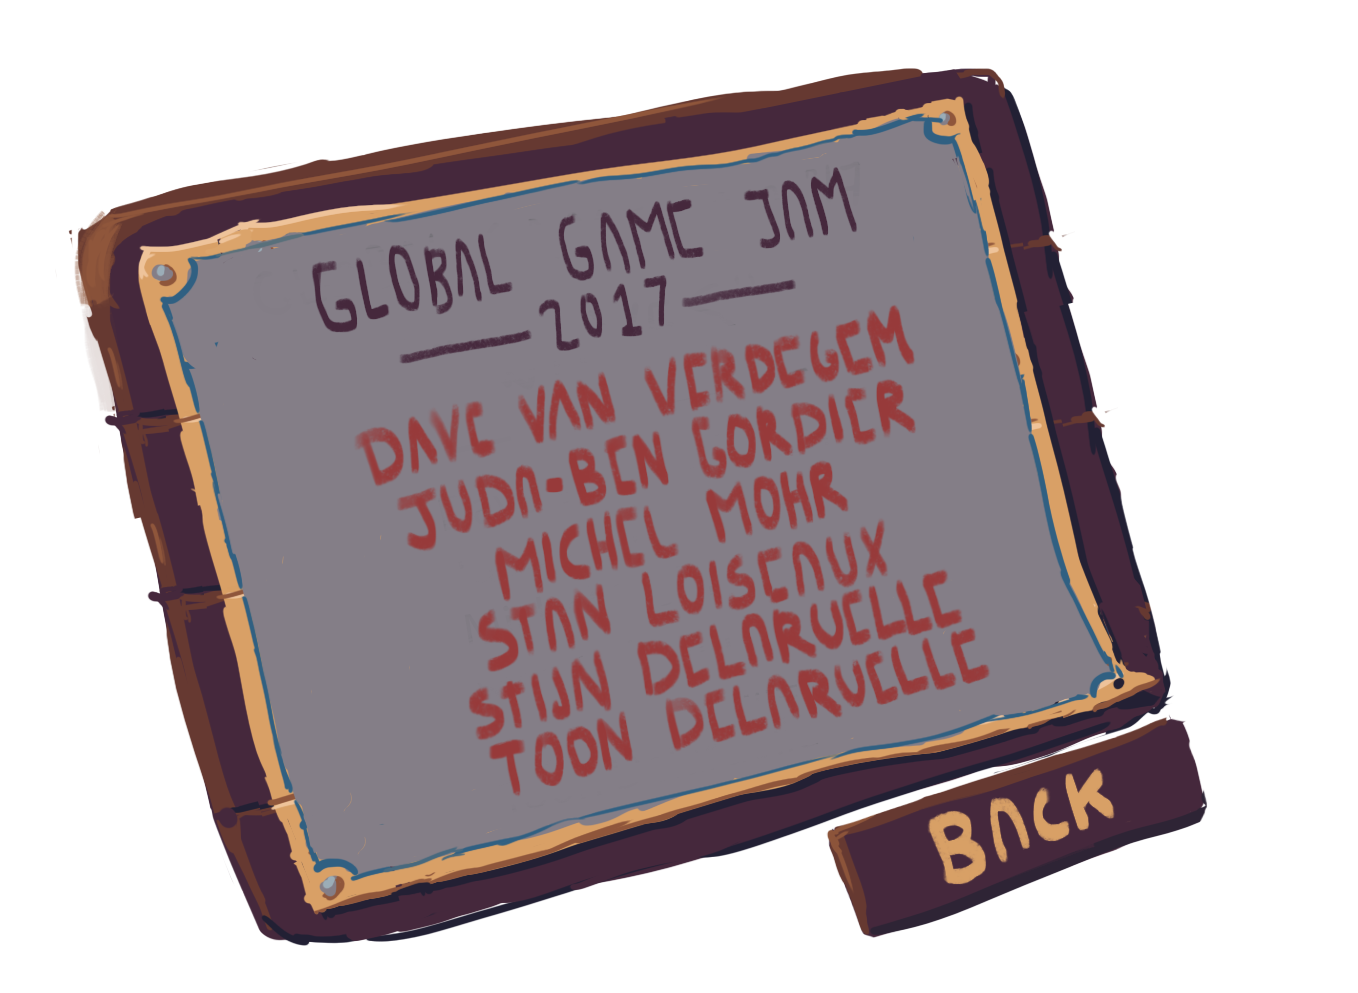 GLOBAL GAME JAM
2017
DAVE VAN VERDEGEM
JUDA-BEN GORDIER
MICHEL MOHR
STAN LOISEAUX
STIJN DELARUELLE
TOON DELARUELLE
BACK